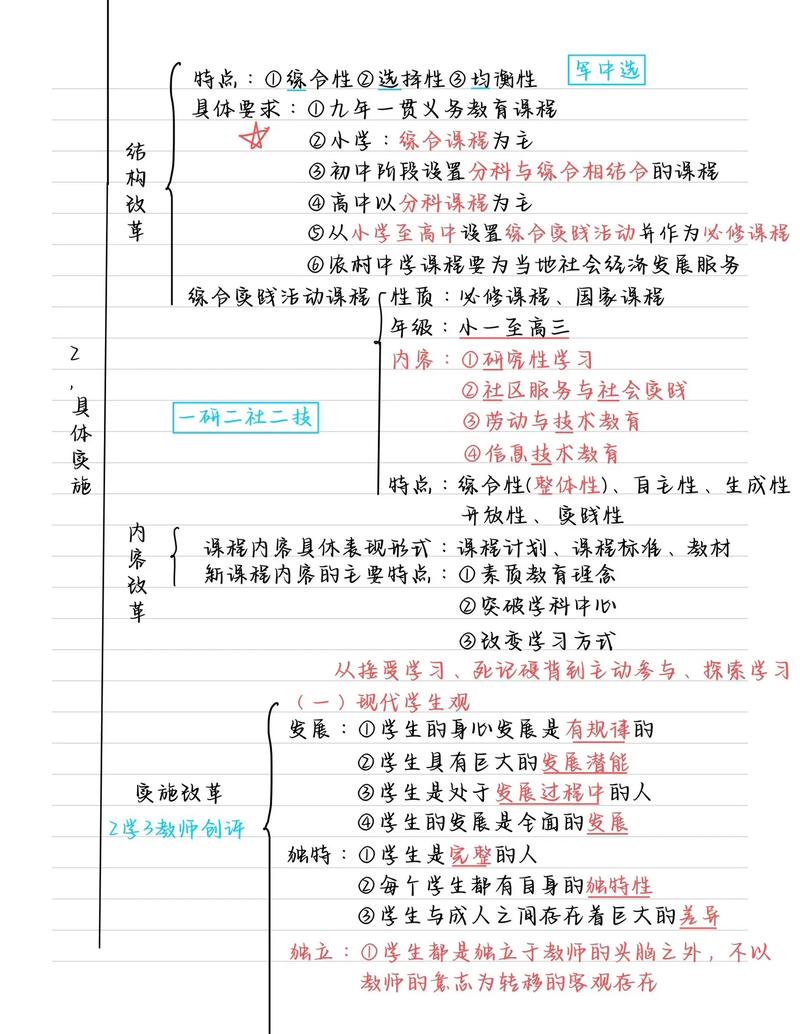 特点：①综合性②选择性③均衡性
军中选
具体要求：①九年一贯义务教育课程
②小学：综合课程为主
③初中阶段设置分科与综合相结合的课程
④高中以分科课程为主
⑤从小学至高中设置综合实践活动并作为必修课程
⑥农村中学课程要为当地社会经济发展服务
结构改革
综合实践活动课程
性质：必修课程、国家课程
年级：小一至高三
内容：①研究性学习
②社区服务与社会实践
③劳动与技术教育
④信息技术教育
一研二社二技
特点：综合性(整体性)、自主性、生成性
开放性、实践性
2，具体实施
内容改革
课程内容具体表现形式：课程计划、课程标准、教材
新课程内容的主要特点：①素质教育理念
②突破学科中心
③改变学习方式
从接受学习、死记硬背到主动参与、探索学习
实施改革
2学3教师创评
（一）现代学生观
发展：①学生的身心发展是有规律的
②学生具有巨大的发展潜能
③学生是处于发展过程中的人
④学生的发展是全面的发展
独特：①学生是完整的人
②每个学生都有自身的独特性
③学生与成人之间存在着巨大的差异
独立：①学生都是独立于教师的头脑之外，不以
教师的意志为转移的客观存在